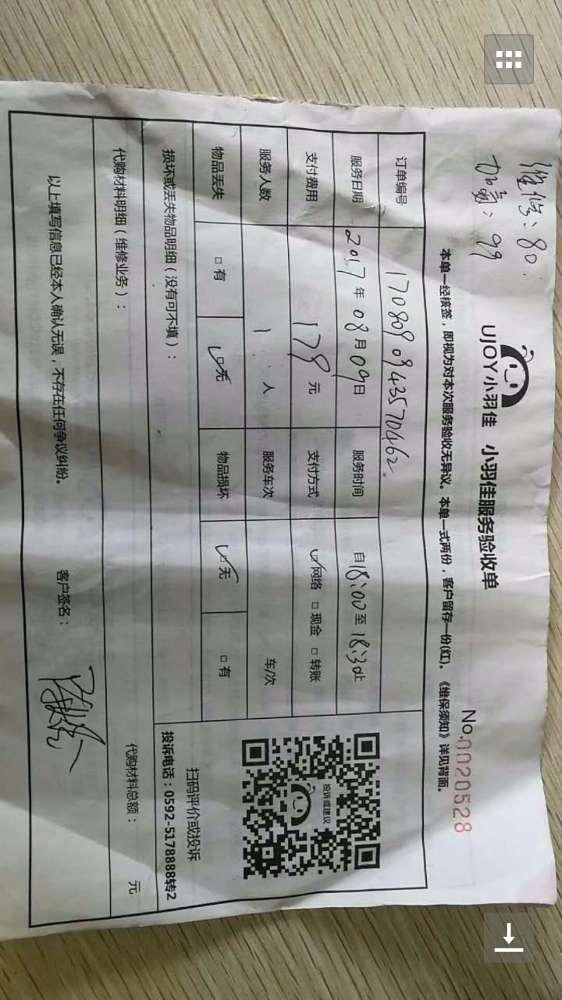 维修：80.
加氟：99
UJOY小羽佳 小羽佳服务验收单
No.0020528
本单一经核签，即视为对本次服务验收无异议。本单一式两份，客户留存一份(红)。《维保须知》详见背面。
订单编号 1708090943570462.
服务日期 2017年08月09日 服务时间 自18:00至18:30止
支付费用 179元 支付方式 ☑网络 □现金 □转账
服务人数 1人 服务车次 车/次
物品丢失 □有 ☑无 物品损坏 ☑无 □有
损坏或丢失物品明细（没有可不填）：
代购材料明细（维修业务）： 代购材料总额： 元
以上填写信息已经本人确认无误，不存在任何争议纠纷。 客户签名：
投诉或建议
扫码评价或投诉
投诉电话：0592-5178888转2